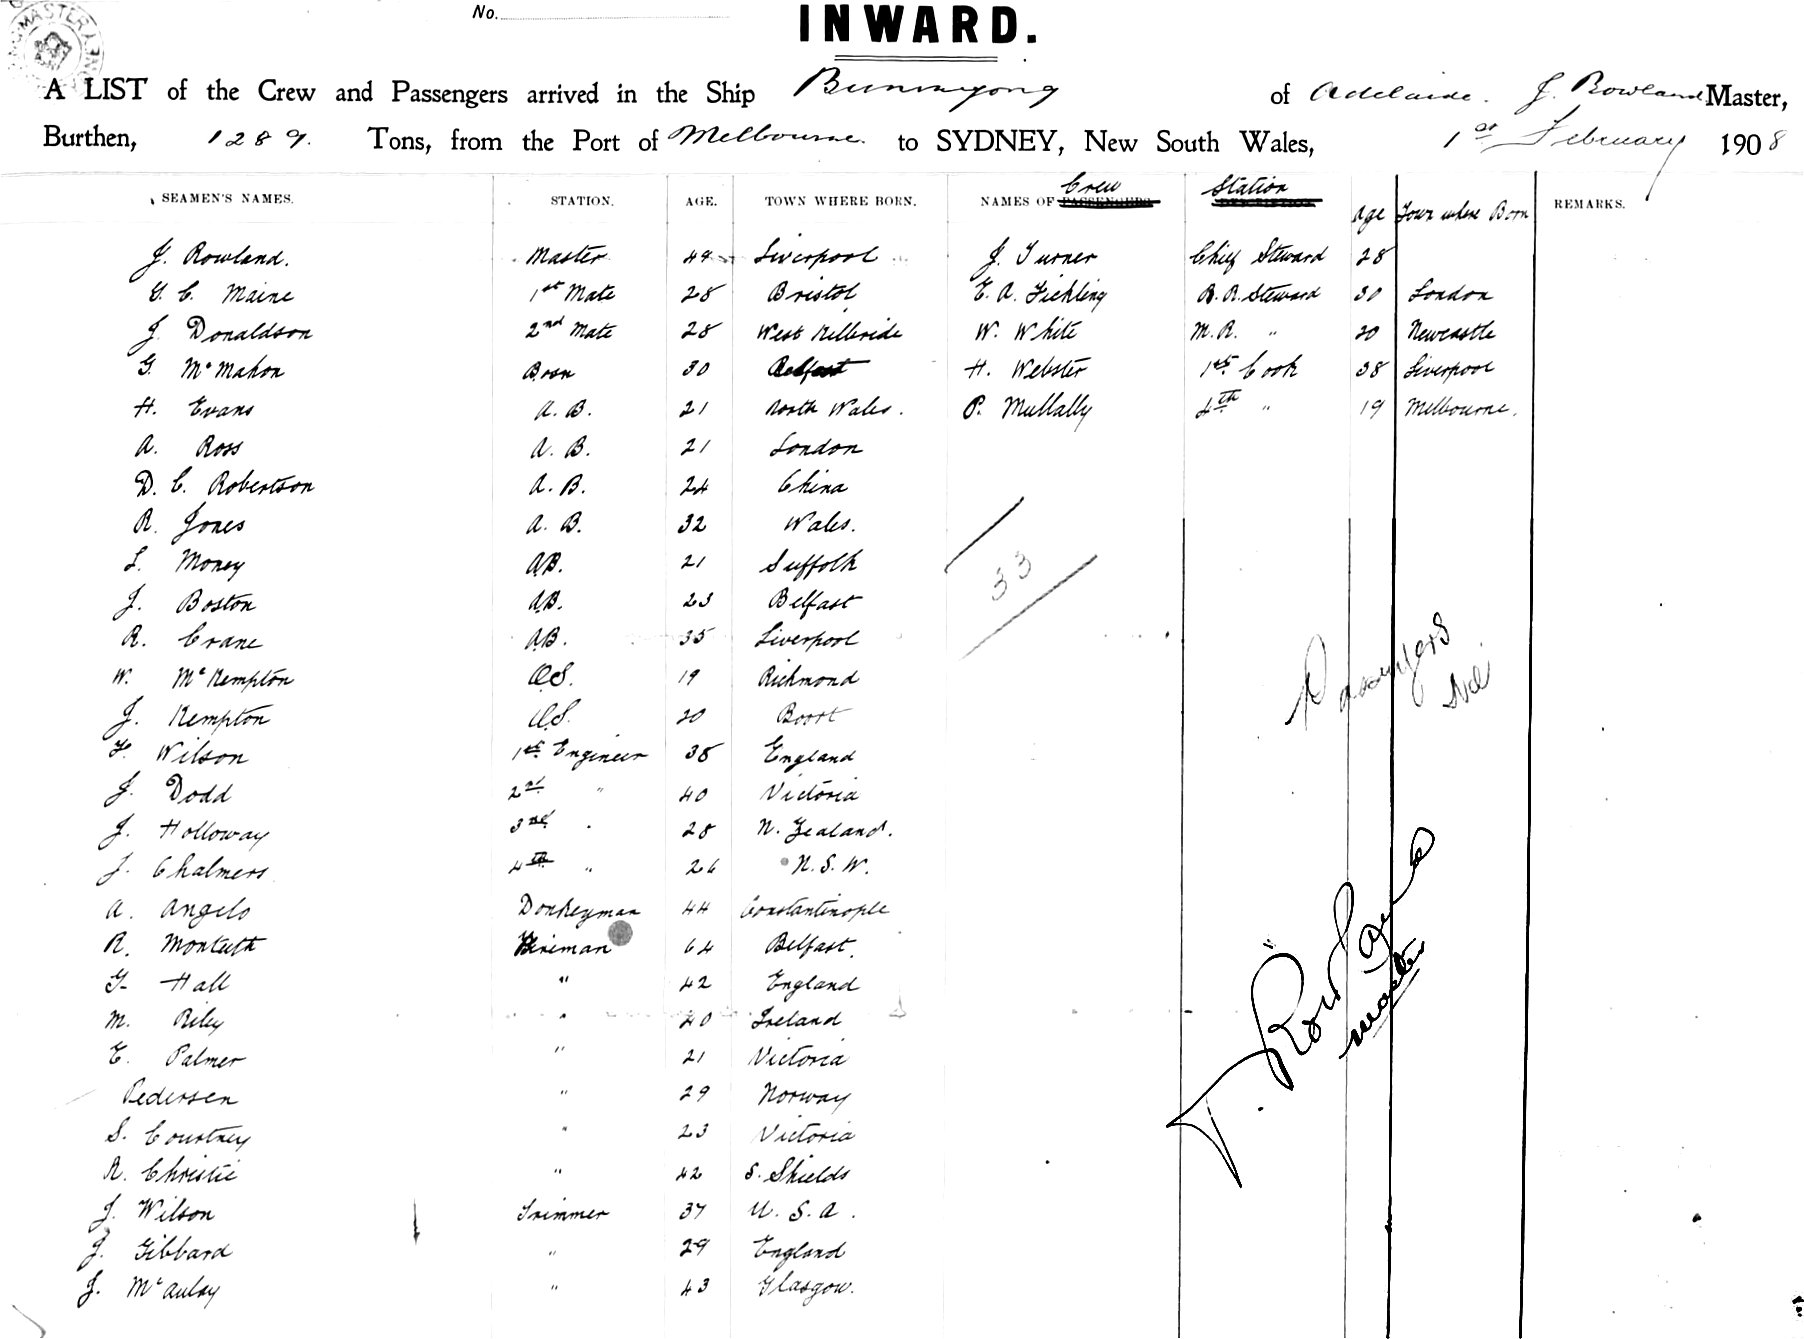 No.
INWARD.
A LIST of the Crew and Passengers arrived in the Ship Buninyong of Adelaide. J. Rowland Master,
Burthen, 1289. Tons, from the Port of Melbourne to SYDNEY, New South Wales, 1st February 1908
SEAMEN'S NAMES. STATION. AGE. TOWN WHERE BORN. NAMES OF Crew Station Age Town where Born REMARKS.
J. Rowland. Master 49 Liverpool J. Turner Chief Steward 28
G. C. Maine 1st Mate 28 Bristol E. A. Fickling B.R. Steward 30 London
J. Donaldson 2nd Mate 28 West Kilbride W. White M.R. " 20 Newcastle
G. McMahon Bosn 30 Belfast H. Webster 1st Cook 38 Liverpool
H. Evans A.B. 21 North Wales. P. Mullally 4th " 19 Melbourne.
A. Ross A.B. 21 London
D. C. Robertson A.B. 24 China
R. Jones A.B. 32 Wales.
L. Money AB. 21 Suffolk
J. Boston AB. 23 Belfast
R. Crane AB. 35 Liverpool
W. McKempton O.S. 19 Richmond
J. Kempton O.S. 20 Boort
F. Wilson 1st Engineer 38 England
J. Dodd 2nd " 40 Victoria
J. Holloway 3rd " 28 N. Zealand.
J. Chalmers 4th " 26 N.S.W.
A. Angelo Donkeyman 44 Constantinople
R. Monteith Fireman 64 Belfast.
G. Hall " 42 England
M. Riley " 40 Ireland
E. Palmer " 21 Victoria
Pedersen " 29 Norway
S. Courtney " 23 Victoria
R. Christie " 42 S. Shields
J. Wilson Trimmer 37 U.S.A.
J. Gibbard " 29 England
J. McAulay " 43 Glasgow.
33
Passengers
Nil
J. Rowland
Master